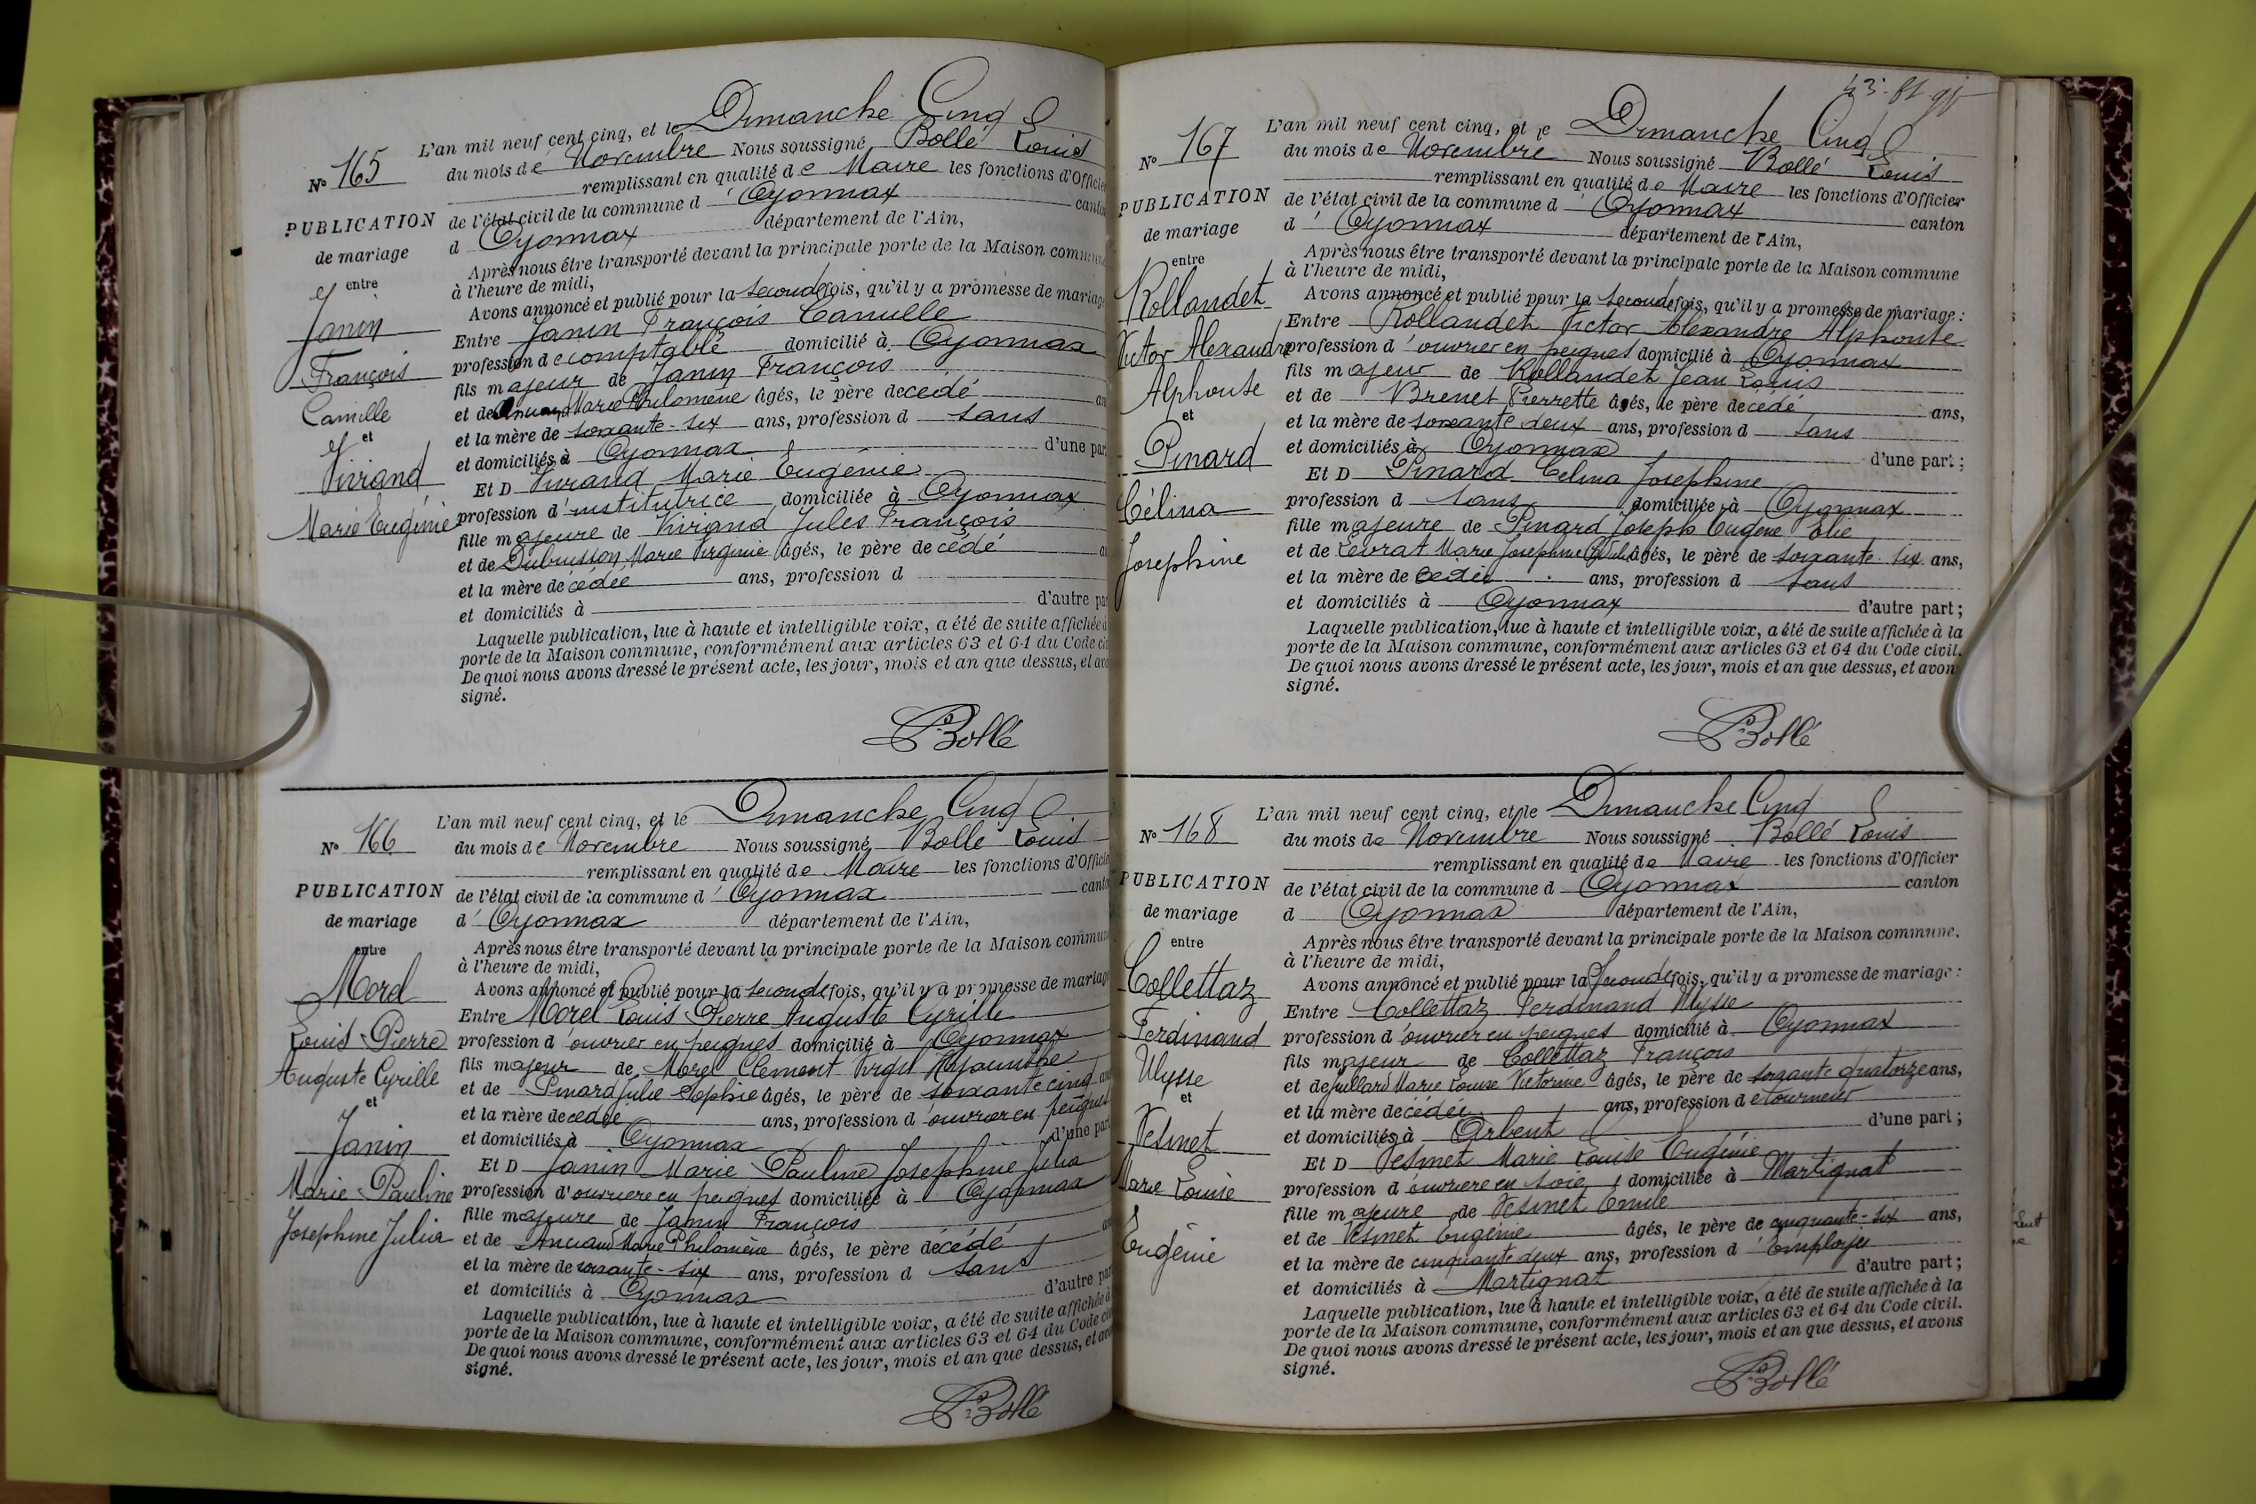 L'an mil neuf cent cinq, et le Dimanche Cinq
N° 165 du mois de Novembre Nous soussigné Bollé Louis
remplissant en qualité de Maire les fonctions d'Officier
PUBLICATION de l'état civil de la commune d'Oyonnax canton
de mariage d'Oyonnax département de l'Ain,
entre Après nous être transporté devant la principale porte de la Maison commune
à l'heure de midi,
Janin Avons annoncé et publié pour la seconde fois, qu'il y a promesse de mariage
Entre Janin François Camille
François profession de comptable domicilié à Oyonnax
fils majeur de Janin François
Camille et de Marie Philomène âgés, le père decédé an
et et la mère de soixante-six ans, profession d sans
Vivrand et domiciliés à Oyonnax d'une part
Et D Vivrand Marie Eugénie
Marie Eugénie profession d'institutrice domiciliée à Oyonnax
fille majeure de Vivrand Jules François
et de Dubuisson Marie Virginie âgés, le père de cédé
et la mère de cédée ans, profession d
et domiciliés à d'autre par
Laquelle publication, lue à haute et intelligible voix, a été de suite affichée à
porte de la Maison commune, conformément aux articles 63 et 64 du Code ci
De quoi nous avons dressé le présent acte, les jour, mois et an que dessus, et avo
signé.
Bollé
L'an mil neuf cent cinq, et le Dimanche Cinq
N° 166 du mois de Novembre Nous soussigné Bollé Louis
remplissant en qualité de Maire les fonctions d'Officie
PUBLICATION de l'état civil de la commune d'Oyonnax canto
de mariage d'Oyonnax département de l'Ain,
entre Après nous être transporté devant la principale porte de la Maison commun
à l'heure de midi,
Morel Avons annoncé et publié pour la seconde fois, qu'il y a promesse de mariage
Entre Morel Louis Pierre Auguste Cyrille
Louis Pierre profession d'ouvrier en peignes domicilié à Oyonnax
Auguste Cyrille fils majeur de Morel Clement Virgil Hyacinthe
et et de Pinard Julie Sophie âgés, le père de soixante cinq ans
et la mère decedée ans, profession d'ouvrier en peignes
Janin et domiciliés à Oyonnax d'une part
Et D Janin Marie Pauline Josephine Julia
Marie Pauline profession d'ouvrière en peignes domiciliée à Oyonnax
Josephine Julia fille majeure de Janin François
et de Marie Philomène âgés, le père decédé
et la mère de soixante-six ans, profession d sans
et domiciliés à Oyonnax d'autre par
Laquelle publication, lue à haute et intelligible voix, a été de suite affichée à
porte de la Maison commune, conformément aux articles 63 et 64 du Code ci
De quoi nous avons dressé le présent acte, les jour, mois et an que dessus, et avo
signé.
Bollé
L'an mil neuf cent cinq, et le Dimanche Cinq
N° 167 du mois de Novembre Nous soussigné Bollé Louis
remplissant en qualité de Maire les fonctions d'Officier
PUBLICATION de l'état civil de la commune d'Oyonnax canton
de mariage d'Oyonnax département de l'Ain,
entre Après nous être transporté devant la principale porte de la Maison commune
à l'heure de midi,
Rollandet Avons annoncé et publié pour la seconde fois, qu'il y a promesse de mariage :
Entre Rollandet Victor Alexandre Alphonse
Victor Alexandre profession d'ouvrier en peignes domicilié à Oyonnax
fils majeur de Rollandet Jean Louis
Alphonse et de Brenet Pierrette âgés, le père decédé ans,
et et la mère de soixante deux ans, profession d sans
Pinard et domiciliés à Oyonnax d'une part ;
Et D Pinard Celina Josephine
Célina profession d sans domiciliée à Oyonnax
fille majeure de Pinard Joseph Eugène Elie
Josephine et de Levrat Marie Josephine âgés, le père de soixante six ans,
et la mère de cedée ans, profession d sans
et domiciliés à Oyonnax d'autre part ;
Laquelle publication, lue à haute et intelligible voix, a été de suite affichée à la
porte de la Maison commune, conformément aux articles 63 et 64 du Code civil.
De quoi nous avons dressé le présent acte, les jour, mois et an que dessus, et avons
signé.
Bollé
L'an mil neuf cent cinq, et le Dimanche Cinq
N° 168 du mois de Novembre Nous soussigné Bollé Louis
remplissant en qualité de Maire les fonctions d'Officier
PUBLICATION de l'état civil de la commune d Oyonnax canton
de mariage d Oyonnax département de l'Ain,
entre Après nous être transporté devant la principale porte de la Maison commune.
à l'heure de midi,
Collettaz Avons annoncé et publié pour la seconde fois, qu'il y a promesse de mariage :
Entre Collettaz Ferdinand Ulysse
Ferdinand profession d'ouvrier en peignes domicilié à Oyonnax
fils majeur de Collettaz François
Ulysse et de Juillard Marie Louise Victorine âgés, le père de soixante quatorze ans,
et et la mère decédée ans, profession de tourneur
Vesinet et domiciliés à Arbent d'une part ;
Et D Vesinet Marie Louise Eugénie
Marie Louise profession d'ouvrière en soie domiciliée à Martignat
fille majeure de Vesinet Emile
Eugénie et de Vesinet Eugénie âgés, le père de cinquante-six ans,
et la mère de cinquante deux ans, profession d'Employé
et domiciliés à Martignat d'autre part ;
Laquelle publication, lue à haute et intelligible voix, a été de suite affichée à la
porte de la Maison commune, conformément aux articles 63 et 64 du Code civil.
De quoi nous avons dressé le présent acte, les jour, mois et an que dessus, et avons
signé.
Bollé